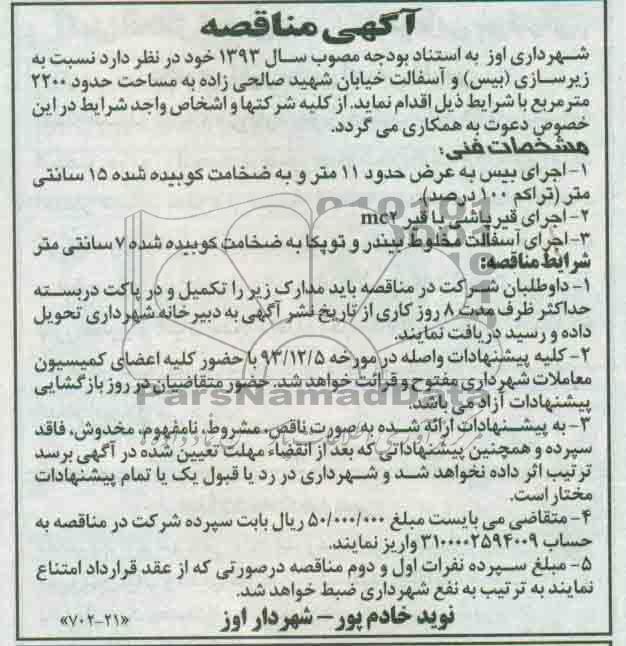 آگهی مناقصه
شهرداری اوز به استناد بودجه مصوب سال ۱۳۹۳ خود در نظر دارد نسبت به
زیرسازی (بیس) و آسفالت خیابان شهید صالحی زاده به مساحت حدود ۲۲۰۰
مترمربع با شرایط ذیل اقدام نماید. از کلیه شرکتها و اشخاص واجد شرایط در این
خصوص دعوت به همکاری می گردد.
مشخصات فنی:
۱- اجرای بیس به عرض حدود ۱۱ متر و به ضخامت کوبیده شده ۱۵ سانتی
متر (تراکم ۱۰۰ درصد)
۲- اجرای قیرپاشی با قیر mc۲
۳- اجرای آسفالت مخلوط بیندر و توپکا به ضخامت کوبیده شده ۷ سانتی متر
شرایط مناقصه:
۱- داوطلبان شرکت در مناقصه باید مدارک زیر را تکمیل و در پاکت دربسته
حداکثر ظرف مدت ۸ روز کاری از تاریخ نشر آگهی به دبیرخانه شهرداری تحویل
داده و رسید دریافت نمایند.
۲- کلیه پیشنهادات واصله در مورخه ۹۳/۱۲/۵ با حضور کلیه اعضای کمیسیون
معاملات شهرداری مفتوح و قرائت خواهد شد. حضور متقاضیان در روز بازگشایی
پیشنهادات آزاد می باشد.
ParsNamadData
۳- به پیشنهادات ارائه شده به صورت ناقص، مشروط، نامفهوم، مخدوش، فاقد
سپرده و همچنین پیشنهاداتی که بعد از انقضاء مهلت تعیین شده در آگهی برسد
ترتیب اثر داده نخواهد شد و شهرداری در رد یا قبول یک یا تمام پیشنهادات
مختار است.
۴- متقاضی می بایست مبلغ ۵۰/۰۰۰/۰۰۰ ریال بابت سپرده شرکت در مناقصه به
حساب ۳۱۰۰۰۰۲۵۹۴۰۰۹ واریز نمایند.
۵- مبلغ سپرده نفرات اول و دوم مناقصه درصورتی که از عقد قرارداد امتناع
نمایند به ترتیب به نفع شهرداری ضبط خواهد شد.
نوید خادم پور- شهردار اوز
«۷۰۲-۲۱»